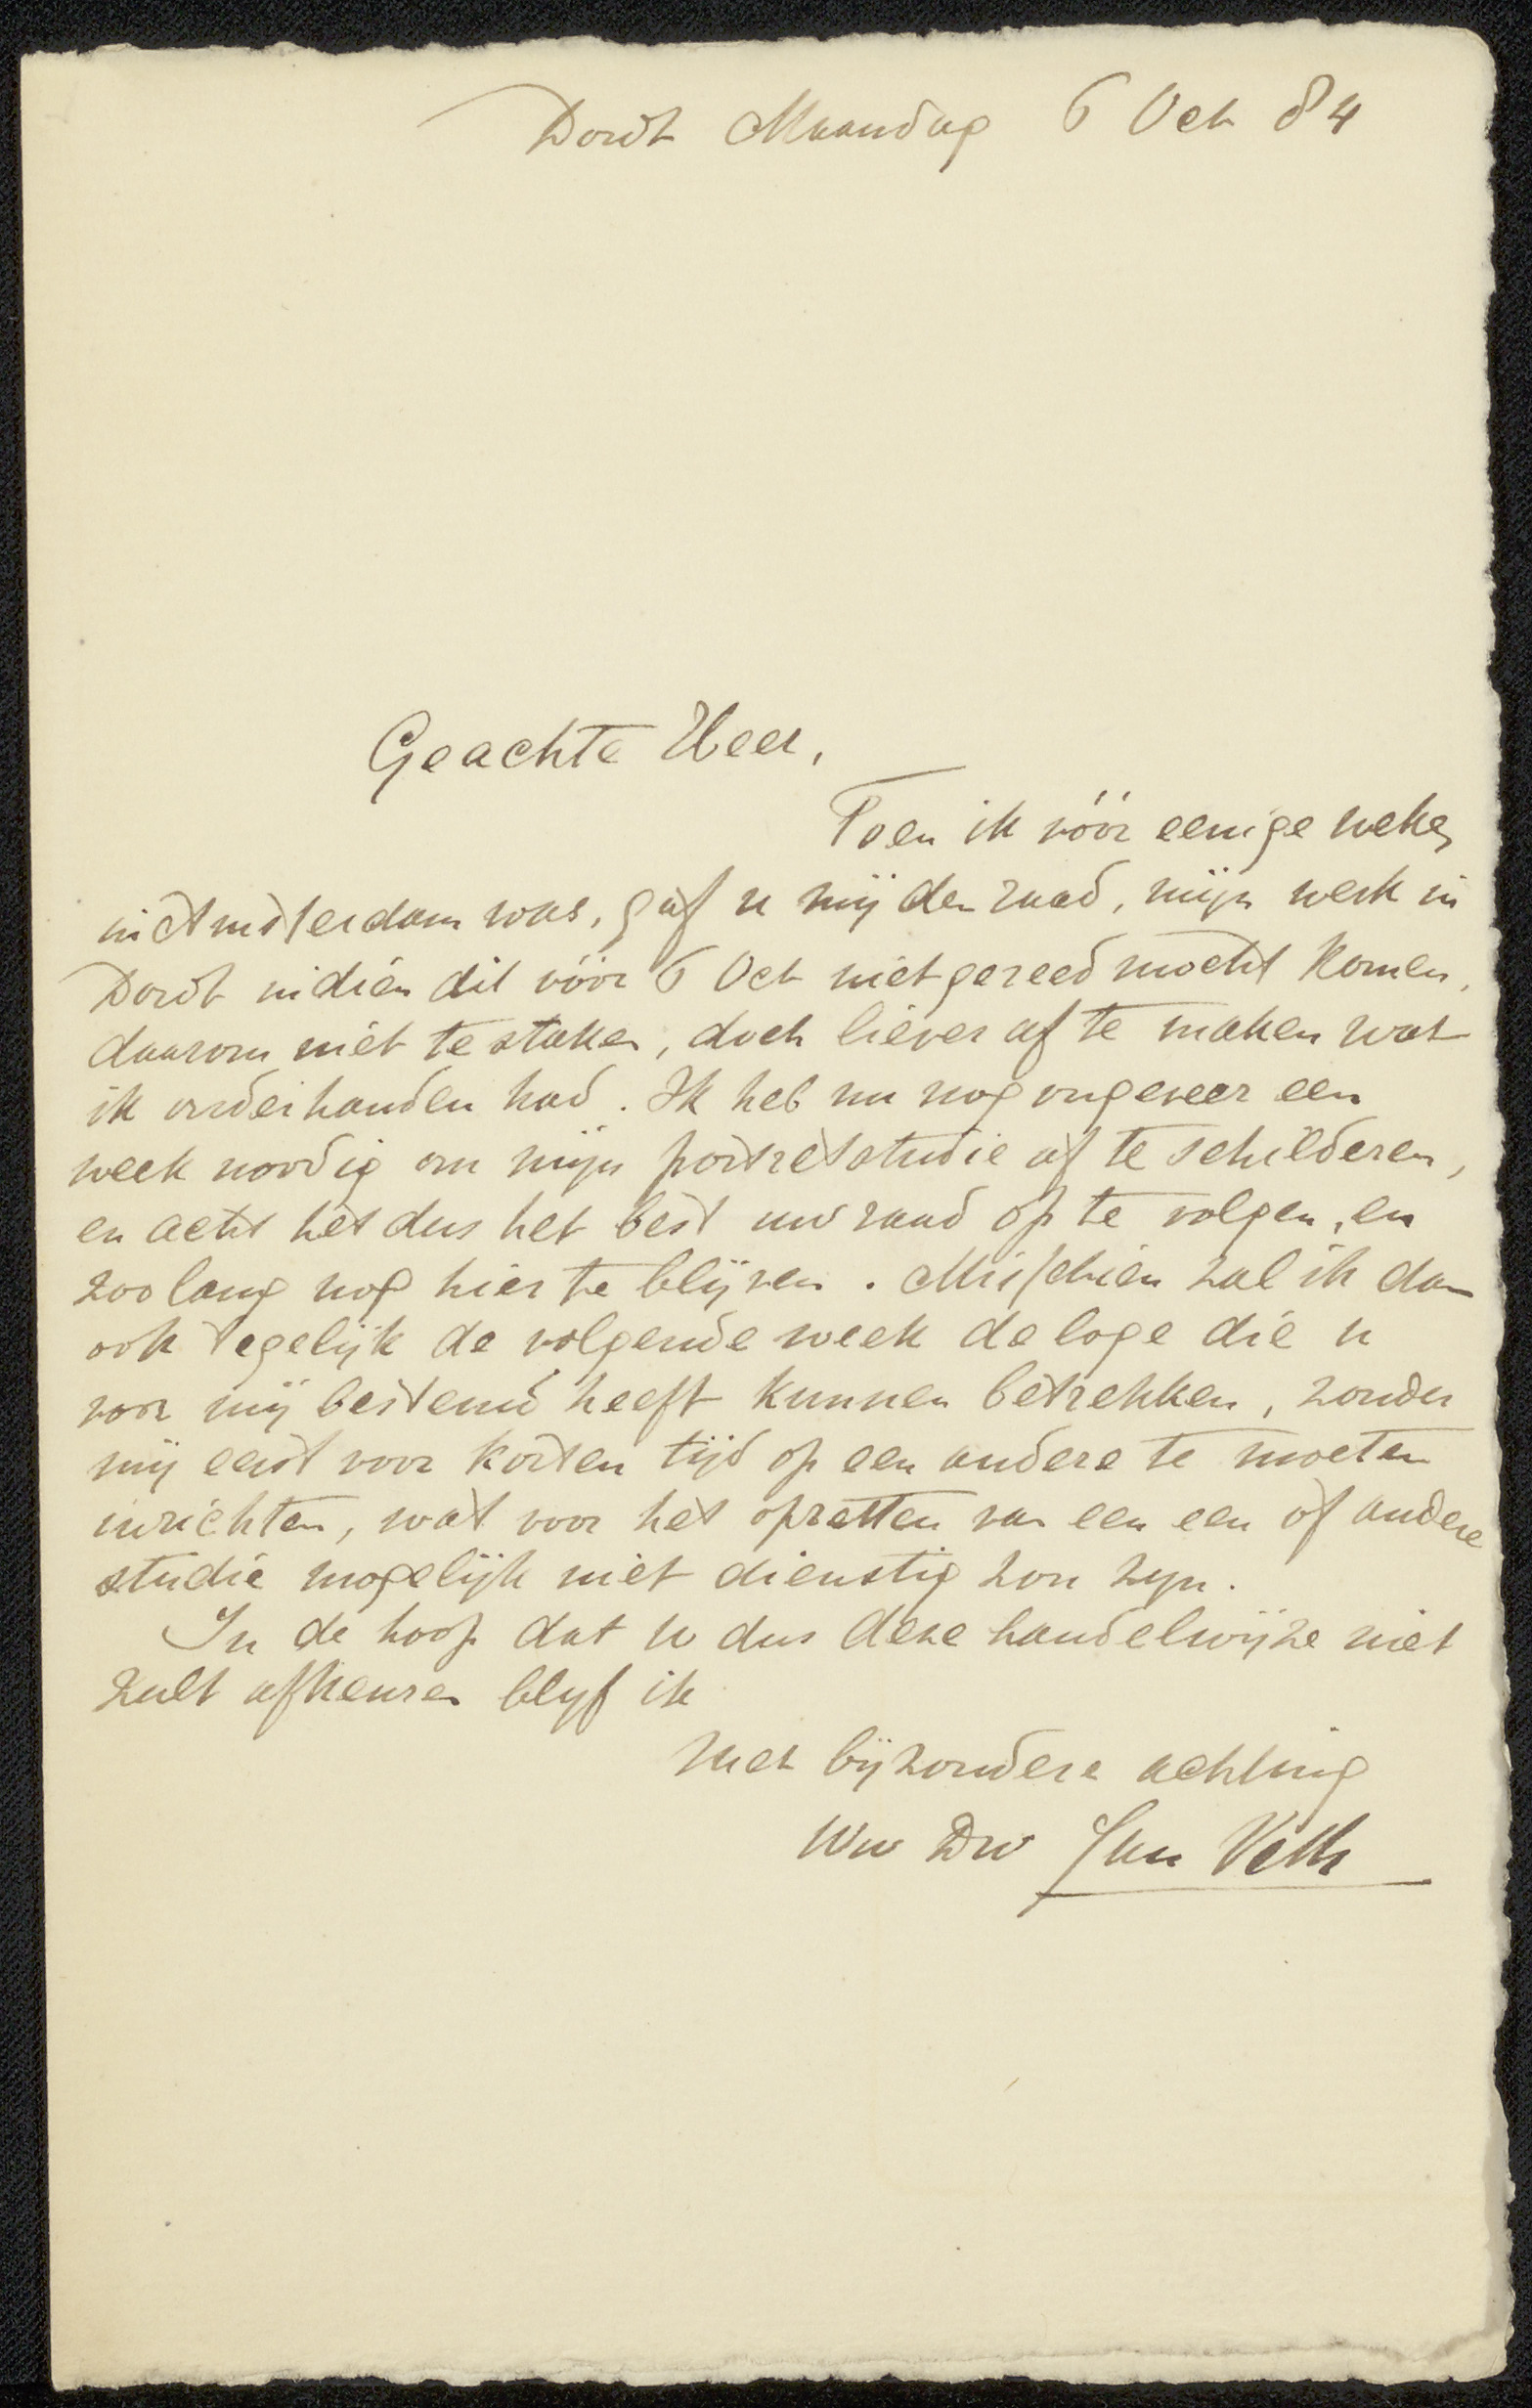 Dordt Maandag 6 Oct 84
Geachte Heer,
Toen ik vóór eenige weken
in Amsterdam was, gaf u mij den raad, mijn werk in
Dordt indien dit vóór 6 Oct niet gereed mocht komen,
daarom niet te staken, doch liever af te maken wat
ik onderhanden had. Ik heb nu nog ongeveer een
week noodig om mijn portretstudie af te schilderen,
en acht het dus het best uw raad op te volgen, en
zoo lang nog hier te blijven. Misschien zal ik dan
ook tegelijk de volgende week de loge die u
voor mij bestemd heeft kunnen betrekken, zonder
mij eerst voor korten tijd op een andere te moeten
inrichten, wat voor het opzetten van een een of andere
studie mogelijk niet dienstig zou zijn.
In de hoop dat u dus deze handelwijze niet
zult afkeuren blijf ik
Met bijzondere achting
Uw Dw Jan Veth